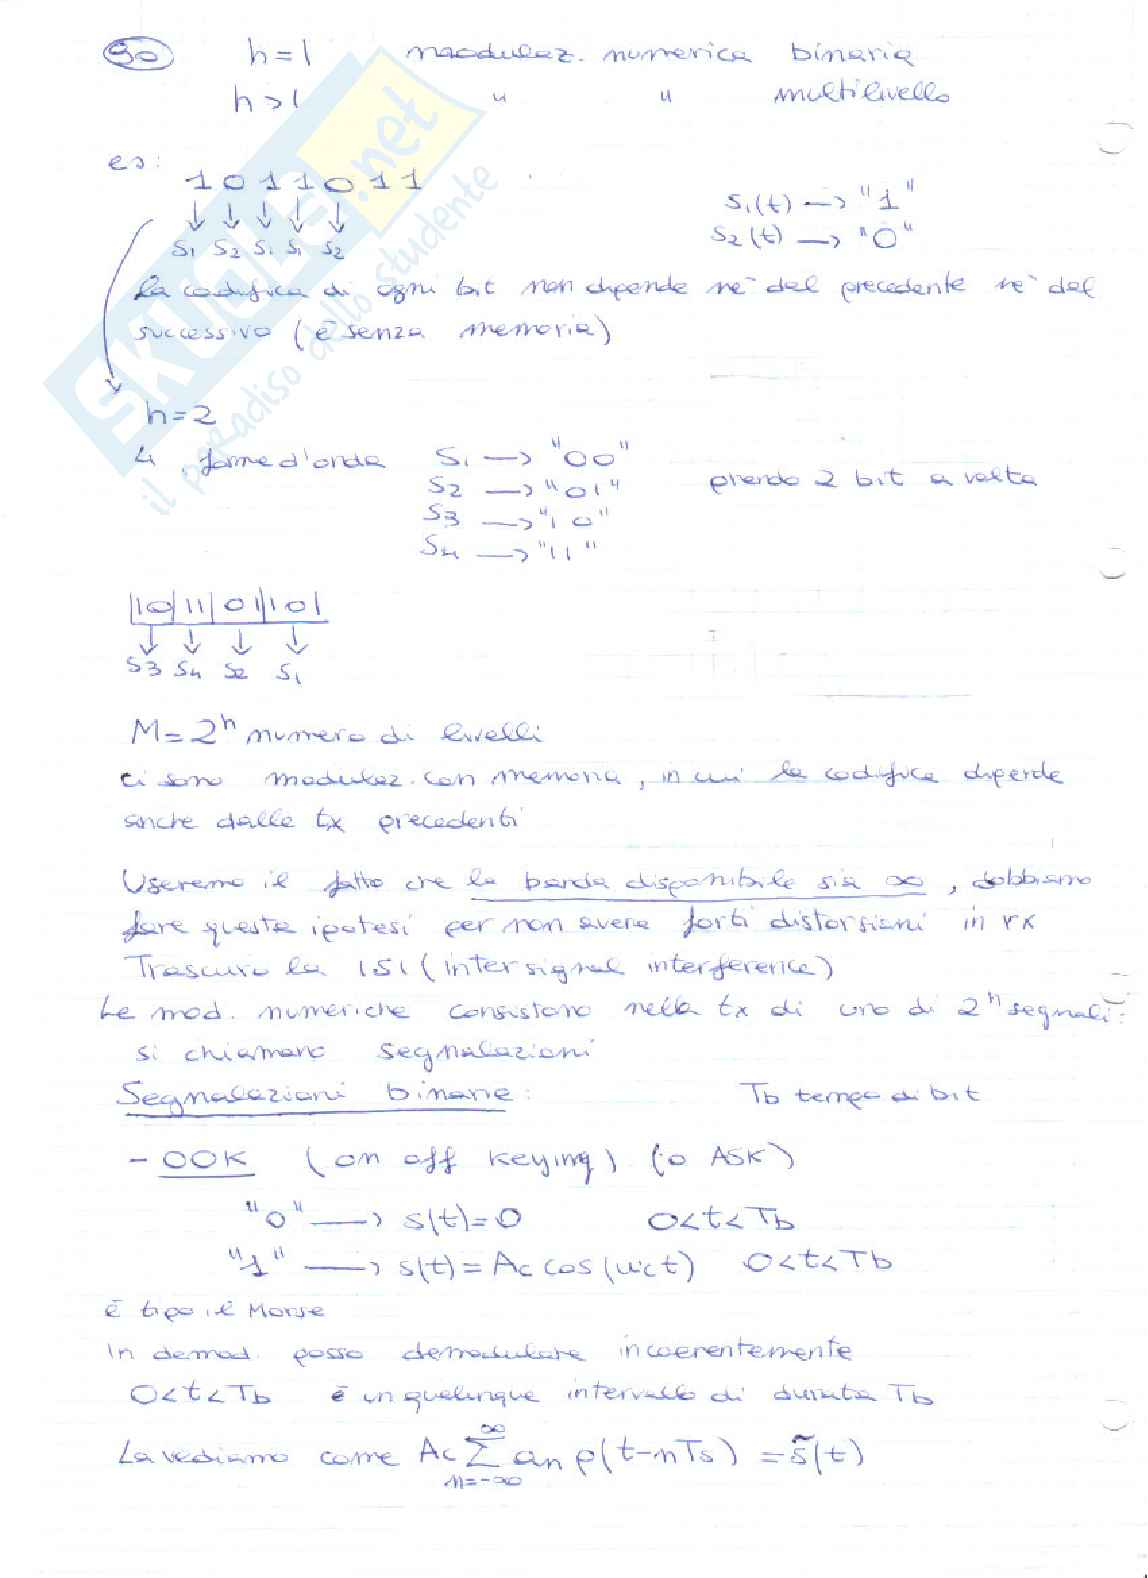 90 h=1 modulaz. numerica binaria
h>1 " " multilivello
es:
1 0 1 1 0 1 1
S1 S2 S1 S1 S2
S1(t) —> "1"
S2(t) —> "0"
la codifica di ogni bit non dipende nè dal precedente nè dal
successivo (è senza memoria)
h=2
4 forme d'onda S1 —> "00"
S2 —> "01"
S3 —> "10"
S4 —> "11"
prendo 2 bit a volta
|10|11|01|10|
S3 S4 S2 S1
M=2^h numero di livelli
ci sono modulaz. con memoria, in cui la codifica dipende
anche dalle tx precedenti
Useremo il fatto che la banda disponibile sia ∞, dobbiamo
fare questa ipotesi per non avere forti distorsioni in rx
Trascuro la ISI (intersignal interference)
Le mod. numeriche consistono nella tx di uno di 2^h segnali:
si chiamano segnalazioni
Segnalazioni binarie: Tb tempo di bit
- OOK (on off keying) (o ASK)
"0" —> s(t)=0 0<t<Tb
"1" —> s(t)=Ac cos(ωct) 0<t<Tb
è tipo il Morse
In demod. posso demodulare incoerentemente
0<t<Tb è un qualunque intervallo di durata Tb
La vediamo come Ac ∑ an p(t-nTs) = s̃(t)
∞
n=-∞
SKUOLA.net
il paradiso dello studente